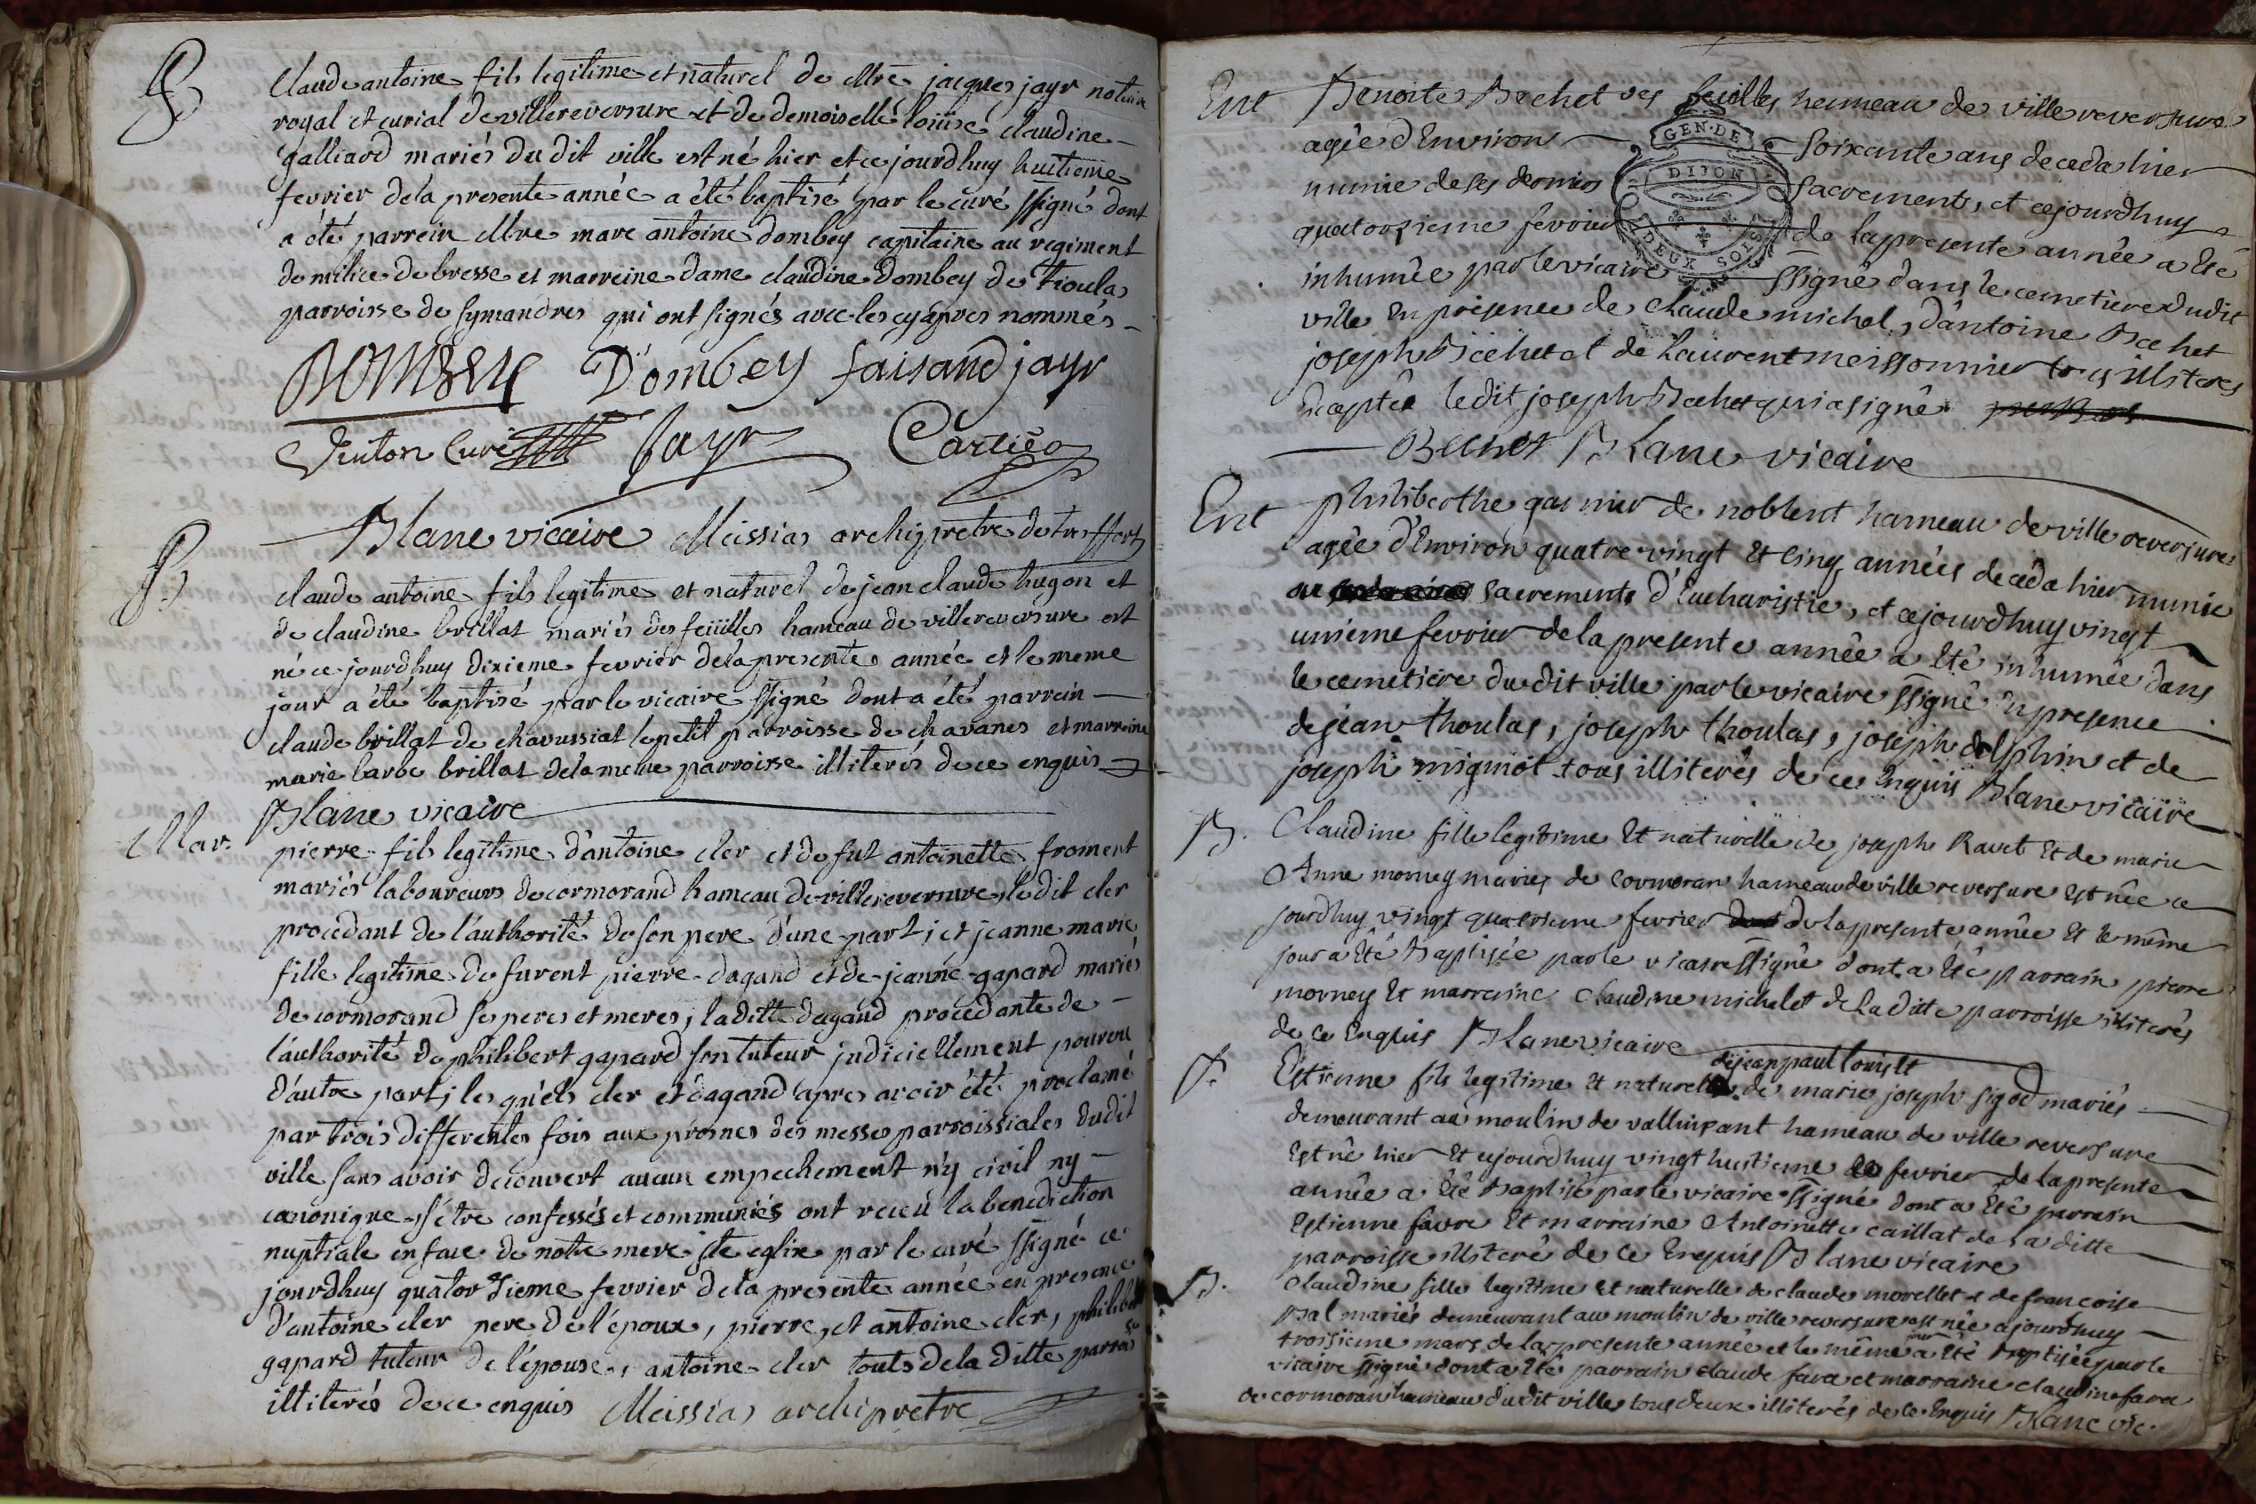 B
Claude antoine fils legitime et naturel de Mre jacques jayr notaire
royal et curial de villereversure et de demoiselle loüise claudine
galliard mariés du dit ville est né hier et ce jourdhuy huitieme
fevrier de la presente année a été baptisé par le curé ssigné dont
a été parrein Mre marc antoine dombey capitaine au regiment
de milice de bresse et marreine dame claudine Dombey de tioulas
parroisse de symandres qui ont signés avec les cy apres nommés
DOMBEY D'ombey faisand jayr
curé Jayr Cartier
Blanc vicaire Meissias archiprêtre de treffort
B
claude antoine fils legitime et naturel de jean claude hugon et
de claudine brillat mariés des feüilles hameau de villereversure est
né ce jourd'huy dixieme fevrier de la presente année et le meme
jour a été baptisé par le vicaire ssigné dont a été parrein
claude brillat de chavussiat le petit parroisse de chavanes et marreine
marie barbe brillat de la meme parroisse illiterés de ce enquis
Blanc vicaire
Mar.
pierre fils legitime d'antoine cler et de fut antoinette froment
mariés laboureurs de cormorand hameau de villereversure, le dit cler
procedant de l'authorité de son pere d'une part; et jeanne marie
fille legitime de furent pierre dagand et de jeanne gapard mariés
de cormorand ses peres et meres, la ditte dagand procedante de
l'authorité de philibert gapard son tuteur judiciellement pourvu
d'autre part; les quels cler et dagand apres avoir été proclamé
par trois differentes fois aux prosnes des messes parroissiales dudit
ville sans avoir decouvert aucun empechement n'y civil ny
canonique, s'etre confessés et communiés ont receu la benediction
nuptiale en face de notre mere ste eglise par le curé ssigné ce
jourdhuy quatorzieme fevrier de la presente année en presence
d'antoine cler pere de l'époux, pierre, et antoine cler, philibert
gapard tuteur de l'épouse, antoine cler touts de la ditte parroisse
illiterés de ce enquis Meissias archiprêtre
Ent
Benoite Bechet des feüilles hemeau de ville reversure
GEN. DE
agée d'Environ soixante ans deceda hier
DIJON
munie de ses derniers sacrements, et cejourdhuy
quatorzieme fevrier de la presente année a Eté
DEUX SOLS
inhumée par le vicaire ssigné dans le cemetiere dudit
ville En présence de Claude michel, d'antoine Bechet
joseph Bechet et de Laurent meissonnier tous illiterés
Excepté le dit joseph Bechet qui a signé
Bechet Blanc vicaire
Ent
philiberthe garnier de noblent hameau de ville reversure
agée d'Environ quatre vingt Et Cinq années deceda hier munie
sacrements d'Eucharistie, et cejourdhuy vingt
unieme fevrier de la presente année a Eté inhumée dans
le cemetiere du dit ville par le vicaire ssigné En presence
de jean thoulas, joseph thoulas, joseph delphin et de
joseph mignot tous illiterés de ce Enquis Blanc vicaire
B.
Claudine fille legitime Et naturelle de joseph Ravet Et de marie
Anne morney mariés de cormoran hameau de ville reversure Est née ce
jourdhuy vingt quatrieme fevrier de la presente année Et le même
jour a Eté Baptisée par le vicaire ssigné dont a Eté parrain pierre
morney Et marraine Claudine michelet de La dite parroisse illiterés
de Ce Enquis Blanc vicaire
de jean paul louis Et
B.
Estienne fils legitime Et naturel de marie joseph sigod mariés
demeurant au moulin de vallinpant hameau de ville reversure
Est né hier Et cejourdhuy vingt huitieme fevrier de la presente
année a Eté Baptisé par le vicaire ssigné dont a Eté parrain
Estienne favre Et marraine Antoinette caillat de La ditte
parroisse illiteré de Ce Enquis Blanc vicaire
B.
Claudine fille legitime Et naturelle de claude morellet et de francoise
Bal mariés demeurant au moulin de ville reversure est née cejourdhuy
troisieme mars de la presente année et le même jour a Eté Baptisée par le
vicaire ssigné dont a Eté parrain claude fava et marraine claudine fava
de cormoran hameau du dit ville tous deux illiterés de Ce Enquis Blanc vic.